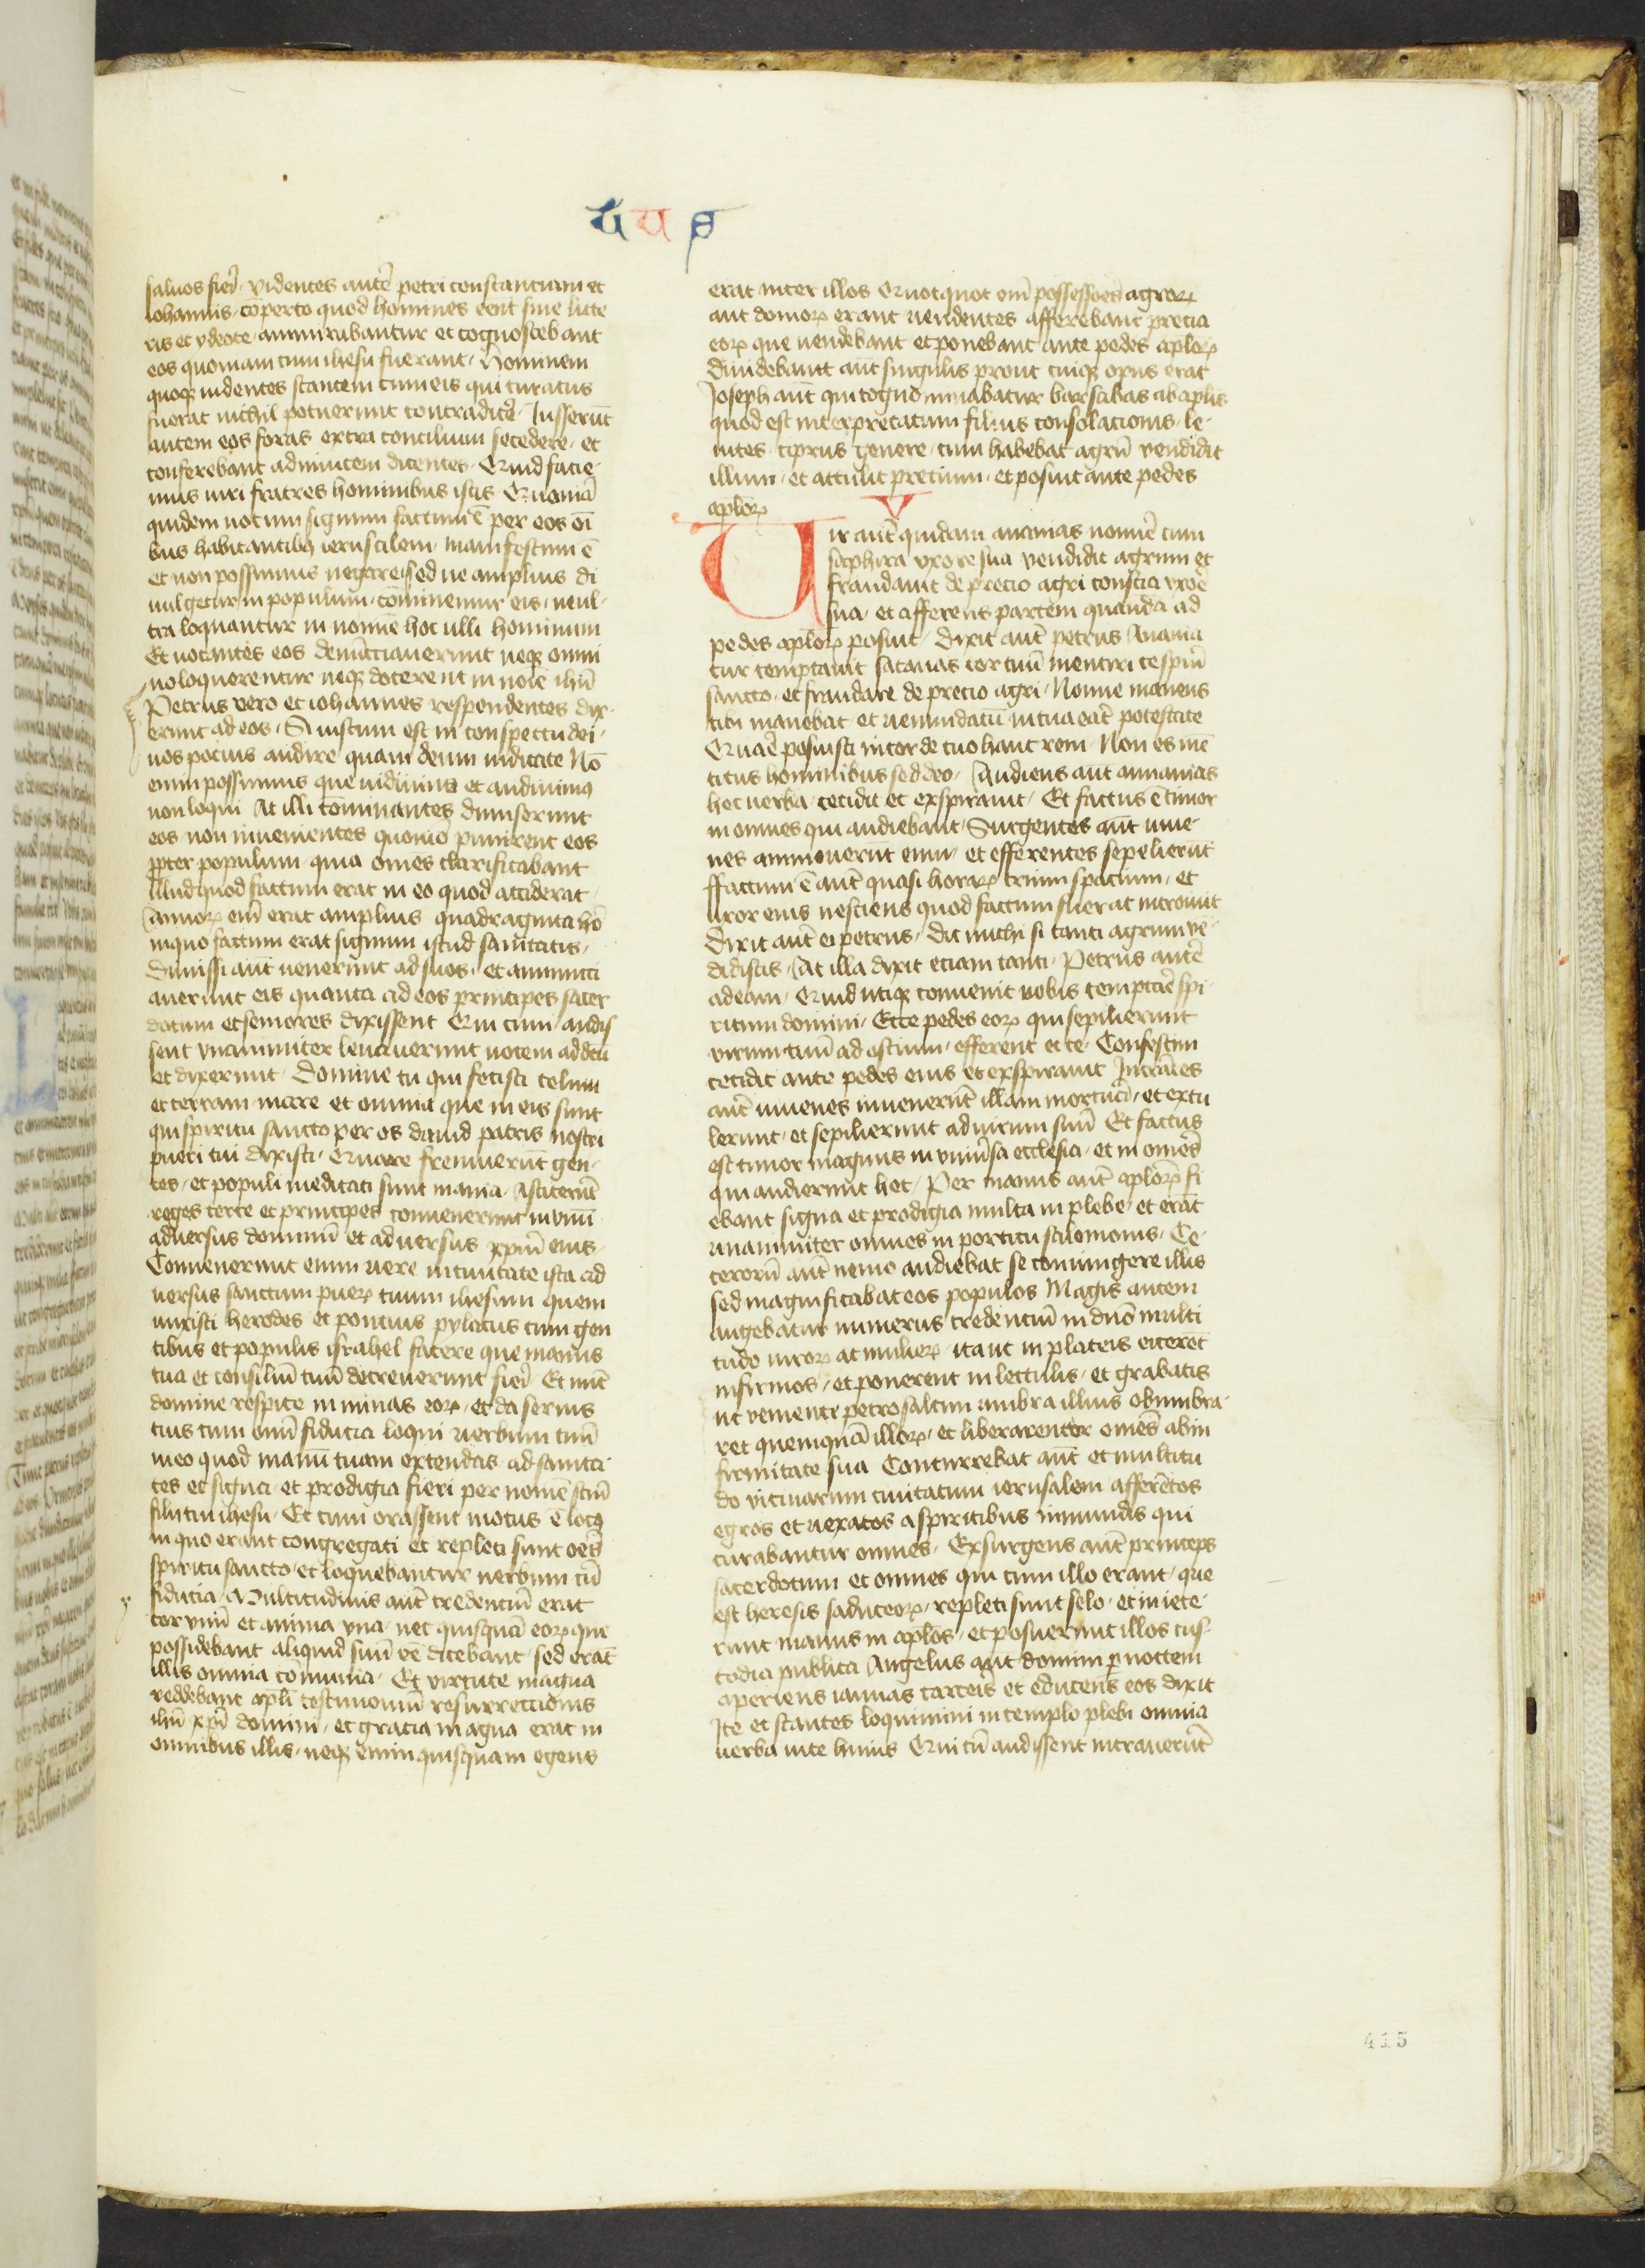 U U S
saluos fieri. videntes autē petri constanciam et
iohannis. cōperto quod homines eent sine litte
ris et ydeote. ammirabantur et cognoscebant
eos quoniam cum ihesu fuerant. Hominem
quoqꝫ uidentes stantem cum eis qui curatus
fuerat nichil potuerunt contradicere. Iusserūt
autem eos foras extra concilium secedere. et
conferebant adinuicem dicentes. Quid facie
mus uiri fratres hominibus istis Quoniā
quidem notum signum factum ē per eos oī
bus habitantibꝫ ierusalem manifestum ē
et non possumus negare sed ne amplius di
uulgetur in populum. cōminemur eis. ne ul-
tra loquantur in nomine hoc ulli hominum
Et uocantes eos denūcciauerunt neqꝫ omni
no loquerentur neqꝫ docerent in noīe ihū
Petrus vero et iohannes respondentes dix-
erunt ad eos. Si iustum est in conspectu dei.
uos pocius audire quam deum iudicate Nō
enim possumus que uidimus et audiuimꝰ
non loqui At illi cōminantes dimiserunt
eos non inuenientes quomō punirent eos
ꝓpter populum quia omēs clarificabant
illud quod factum erat in eo quod acciderat.
Annoꝝ em̄ erat amplius quadraginta hō
in quo factum erat signum istud sanitatis.
Dimissi aūt uenerunt ad suos. et annuncci
auerunt eis quanta ad eos principes sacer
dotum et seniores dixissent Qui cum audis
sent vnanimiter leuauerunt uocem ad deū
et dixerunt. Domine tu qui fecisti celum
et terram mare et omnia que in eis sunt
qui spiritu sancto per os dauid patris nostri
pueri tui dixisti. Quare fremuerūt gen-
tes. et populi meditati sunt inania. Astiterūt
reges terre et principes conuenerunt in vnū
aduersus dominū et aduersus xpm̄ eius.
Conuenerunt enim uere in ciuitate ista ad
uersus sanctum pueꝝ tuum ihesum quem
unxisti herodes et poncius pylatus cum gen
tibus et populis israhel facere que manus
tua et consiliū tuū decreuerunt fieri. Et nūc
domine respice in minas eoꝝ. et da seruis
tuis cum omī fiducia loqui uerbum tuū
in eo quod manū tuam extendas ad sanita
tes et signa. et prodigia fieri per nomē scm̄
filii tui ihesu. Et cum orassent motus ē locꝰ
in quo erant congregati et repleti sunt oēs
spiritu sancto. et loquebantur uerbum cū
fiducia. Multitudinis aūt credenciū erat
cor vnū et anima vna. nec quisquā eoꝝ que
possidebant aliquid suū eē dicebant. sed erāt
illis omnia cōmunia. Et virtute magna
reddebant apli testimoniū resurrectionis
ihū xpī domini. et gracia magna erat in
omnibus illis. neqꝫ enim quisquam egens
erat inter illos Quotquot em̄ possessoēs agroꝝ
aut domoꝝ erant uendentes afferebant precia
eoꝝ que uendebant et ponebant ante pedes aploꝝ
Diuidebant aūt singulis prout cuiqꝫ opus erat
Joseph aūt qui cognōminabatur barsabas ab aplis
quod est interpretatum filius consolacionis. le-
uites. ciprus genere. cum haberet agrū vendidit
illum. et attulit precium. et posuit ante pedes
aploꝝ
V
Vir autē quidam ananias nomīe cum
saphira vxore sua vendidit agrum et
fraudauit de precio agri conscia vxoē
sua. et afferens partem quandā ad
pedes aploꝝ posuit. Dixit aūt petrus Anania
cur temptauit satanas cor tuū mentiri te spūi
sancto. et fraudare de precio agri. Nonne manens
tibi manebat et uenundatū in tua eāt potestate
Quaē posuisti in corde tuo hanc rem. Non es mē
titus hominibus sed deo. Audiens aūt annanias
hec uerba. cecidit et exspirauit. Et factus ē timor
in omnes qui audiebant. Surgentes aūt iuue-
nes ammouerūt eum. et efferentes sepelierūt
ffactum ē aūt quasi horaꝝ trium spacium. et
uxor eius nesciens quod factum fuerat introiuit
Dixit aūt ei petrus. Dic michi si tanti agrum vē
didistis. At illa dixit etiam tanti. Petrus autē
ad eam. Quid utiqꝫ conuenit vobis temptare spi-
ritum domini. Ecce pedes eoꝝ qui sepilierunt
virum tuū ad ostium. efferent et te. Confestim
cecidit ante pedes eius et exspirauit Intrātes
aūt iuuenes inuenerūt illam mortuā. et extu
lerunt. et sepilierunt ad uirum suū Et factus
est timor magnus in vniūsa ecclesia. et in omēs
qui audierunt hec. Per manus aūt aploꝝ fi
ebant signa et prodigia multa in plebe. et erāt
unanimiter omnes in porticu salomonis. Ce-
terorū aūt nemo audiebat se coniungere illis
sed magnificabat eos populos Magis autem
augebatur numerus credenciū in dnō multi
tudo uiroꝝ ac mulieꝝ. ita ut in plateis eicerēt
infirmos. et ponerent in lectulis. et grabatis
ut veniente petro saltim umbra illius obumbra-
ret quemquā illoꝝ. et liberarentur omēs ab in
firmitate sua Concurrebat aūt et multitu
do vicinarum ciuitatum ierusalem afferētes
egros et uexatos a spiritibus inmundis qui
curabantur omnes. Exsurgens aūt princeps
sacerdotum et omnes qui cum illo erant. que
est heresis saduceoꝝ. repleti sunt selo. et iniece-
runt manus in aplos. et posuerunt illos cus-
todia publica Angelus aūt domini ꝑ noctem
aperiens ianuas carceris et educens eos dixit
Ite et stantes loquimini in templo plebi omnia
uerba uite huius Qui cū audissent intrauerūt
415